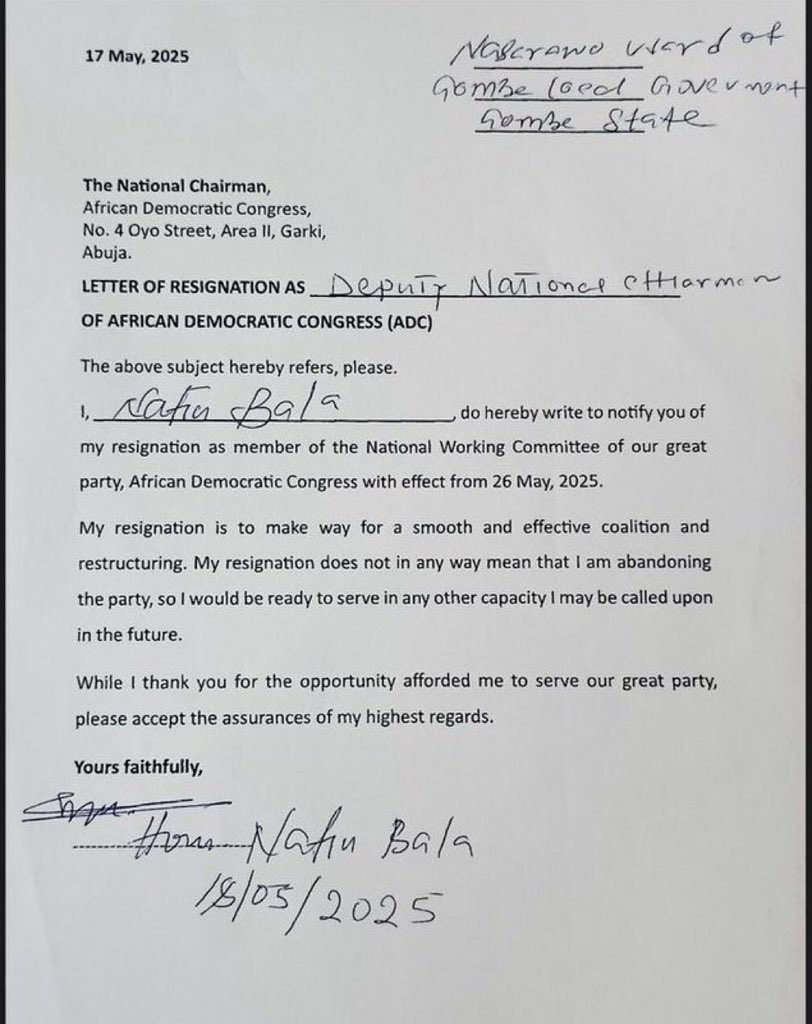 17 May, 2025
Nasarawo Ward of
Gombe Local Government
Gombe State
The National Chairman,
African Democratic Congress,
No. 4 Oyo Street, Area II, Garki,
Abuja.
LETTER OF RESIGNATION AS Deputy National Chairman
OF AFRICAN DEMOCRATIC CONGRESS (ADC)
The above subject hereby refers, please.
I, Nafiu Bala, do hereby write to notify you of
my resignation as member of the National Working Committee of our great
party, African Democratic Congress with effect from 26 May, 2025.
My resignation is to make way for a smooth and effective coalition and
restructuring. My resignation does not in any way mean that I am abandoning
the party, so I would be ready to serve in any other capacity I may be called upon
in the future.
While I thank you for the opportunity afforded me to serve our great party,
please accept the assurances of my highest regards.
Yours faithfully,
Hon Nafiu Bala
18/05/2025